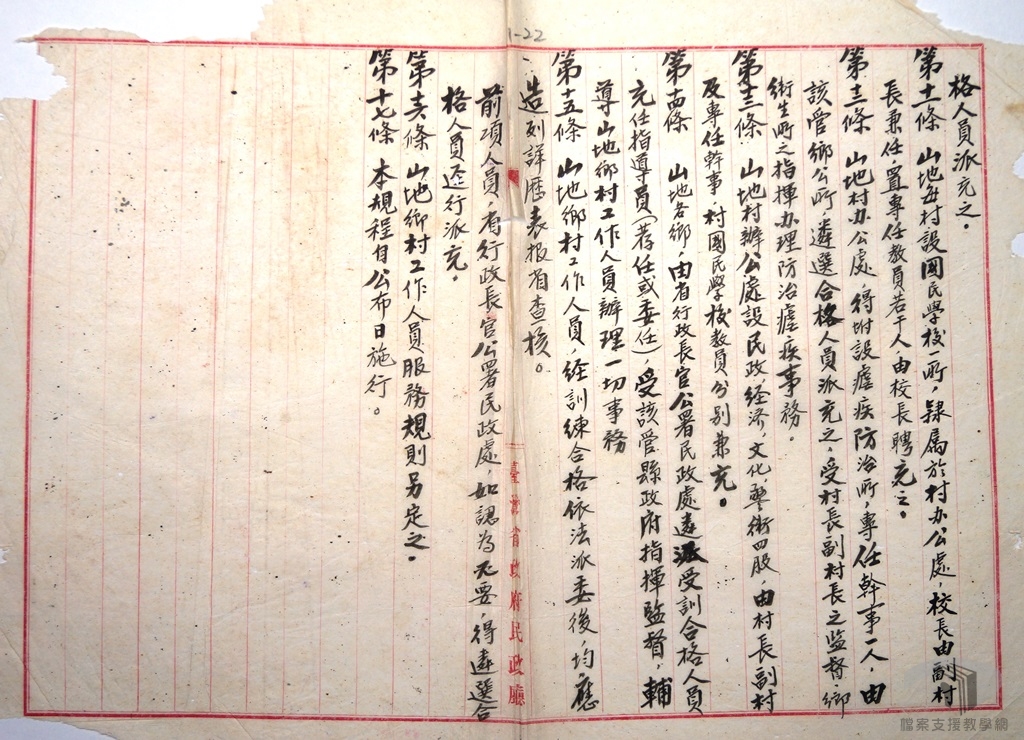 1-22
格人員派充之。
第十一條　山地每村設國民學校一所，隸屬於村办公處，校長由副村
長兼任，置專任教員若干人，由校長聘充之。
第十二條　山地村办公處，得附設瘧疾防治所，專任幹事一人，由
該管鄉公所，遴選合格人員派充之，受村長副村長之监督，鄉
衛生所之指揮办理防治瘧疾事務。
第十三條　山地村辦公處設民政，經济，文化，警衛四股，由村長副村
及專任幹事，村國民學校教員分別兼充。
第十四條　山地各鄉，由省行政長官公署民政處遴派受訓合格人員
充任指導員（荐任或委任），受該管縣政府指揮監督，輔
導山地鄉村工作人員辦理一切事務
第十五條　山地鄉村工作人員，經訓練合格依法派委後，均應
造列詳歷表报省查核。
前項人員，省行政長官公署民政處，如認為必要，得遴選合
格人員逕行派充。
第十六條　山地鄉村工作人員服務規則另定之。
第十七條　本規程自公布日施行。
臺灣省政府民政廳
檔案支援教學網